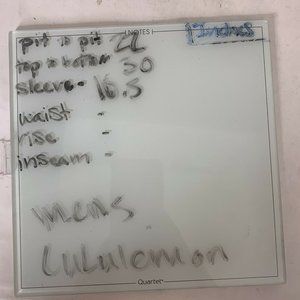 | NOTES |
Inches
pit to pit 22
top to bottom 30
sleeve - 16.5
waist -
rise -
inseam -
mens
Lululemon
Quartet